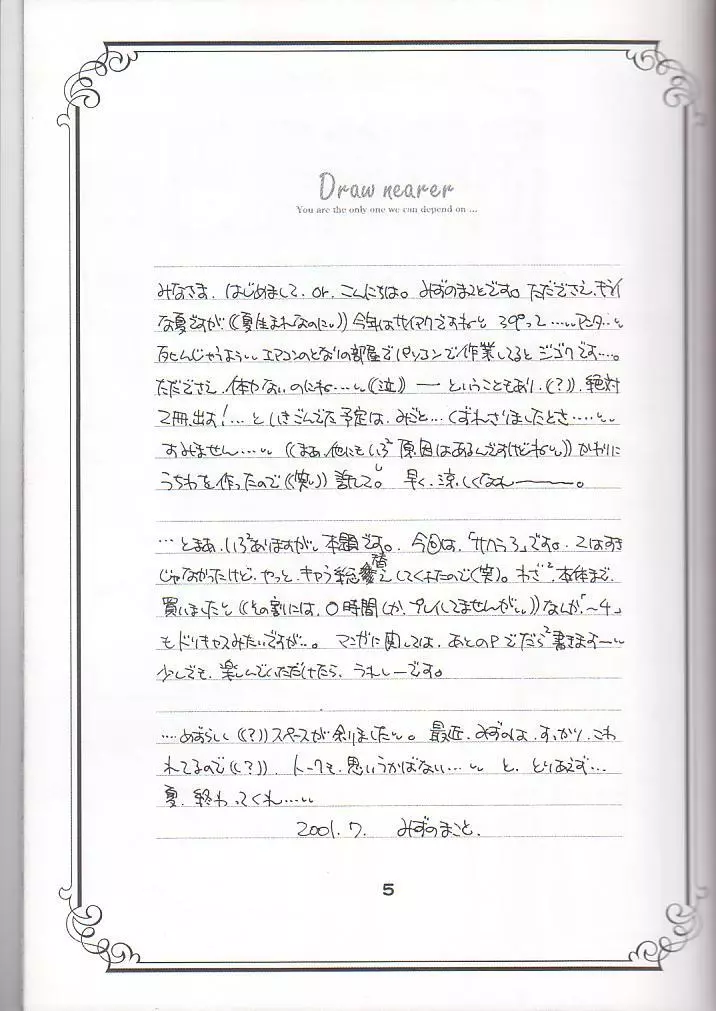 Draw nearer
You are the only one we can depend on ...
みなさま、はじめまして、or、こんにちは。みずのまことです。ただでさえ、キライ
な夏ですが((夏生まれなのに。))今年はサイアクですねと 39°って……アンタ…
死んじゃうよう… エアコンのとなりの部屋でパソコンで作業してると ジゴクです…。
ただでさえ、体力ないのにね……((泣)) ー ということもあり、(?)、絶対
2冊、出す!…と いきごんでた予定は、みごと…くずれさりましたとさ……
すみません…… ((まあ、他にもいろ²原因はあるんですけどね))かわりに
うちわを作ったので((笑))許して。 早く、涼しくなれー。
…とまあ、いろ²ありますが、本題です。、今回は、「サクラ3」です。2はすき
じゃなかったけど、やっと、キャラ総替えしてくれたので(笑)。わざ²、本体まで、
買いましたと((その割には、0時間しか、プレイしてませんが))なんか「〜4」
もドリキャスみたいですが…。 マンガに関しては、あとのPでだら²書きますー
少しでも、楽しんでいただけたら、うれしーです。
……めずらしく((?))スペースが余りました。 最近、みずのは、すっかり、こわ
れてるので((?))、トークも、思いうかばない…… と、とりあえず…
夏、終わってくれ……
2001.7. みずのまこと.
5